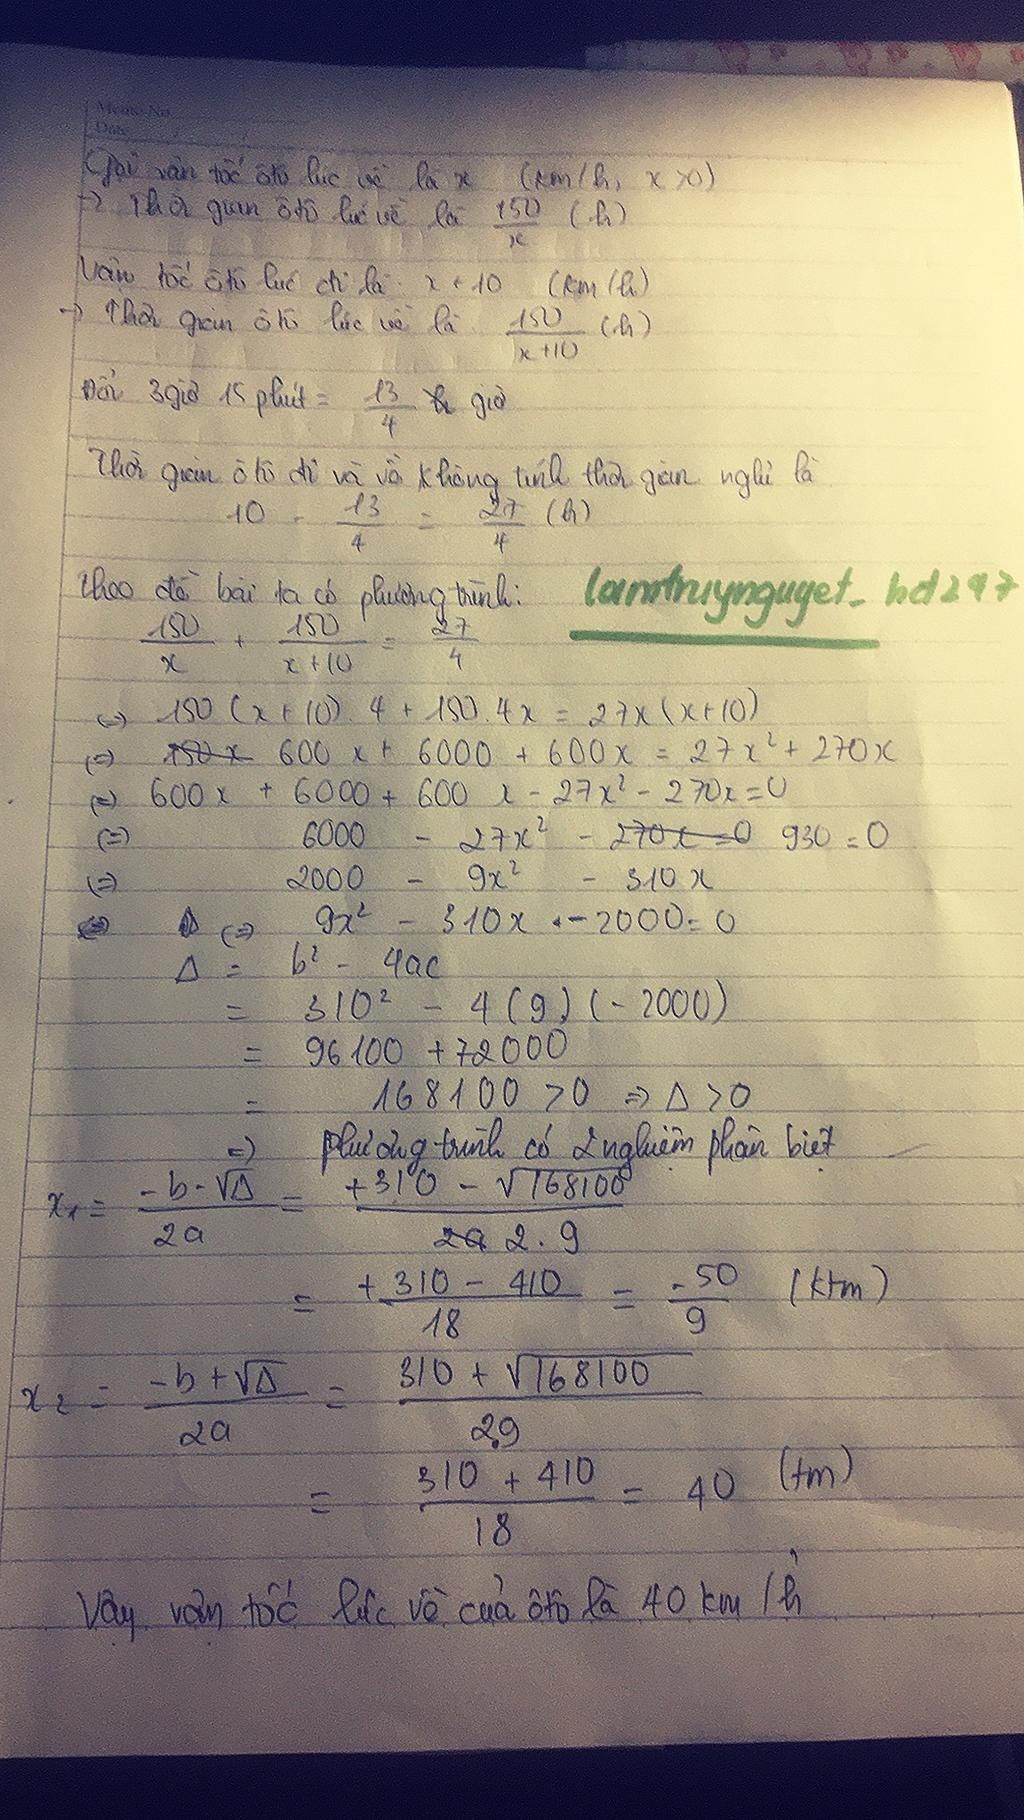 Memo No
Date
Gọi vận tốc ôtô lúc về là x (km/h, x>0)
-> Thời gian ôtô lúc về là 150/x (h)
Vận tốc ôtô lúc đi là x + 10 (km/h)
-> Thời gian ôtô lúc về là 150/(x+10) (h)
Đổi 3 giờ 15 phút = 13/4 giờ
Thời gian ôtô đi và về không tính thời gian nghỉ là
10 - 13/4 = 27/4 (h)
Theo đề bài ta có phương trình: lamtruynguyet_hd297
150/x + 150/(x+10) = 27/4
(=) 150(x+10).4 + 150.4x = 27x(x+10)
(=) 150x 600x + 6000 + 600x = 27x² + 270x
(=) 600x + 6000 + 600x - 27x² - 270x = 0
(=) 6000 - 27x² - 270x = 0 930 = 0
(=) 2000 - 9x² - 310x
(=) 9x² - 310x - 2000 = 0
Δ = b² - 4ac
= 310² - 4(9)(-2000)
= 96100 + 72000
= 168100 > 0 => Δ > 0
=> phương trình có 2 nghiệm phân biệt
x₁ = (-b-√Δ)/2a = (+310 - √168100)/2a 2.9
= (+310 - 410)/18 = -50/9 (ktm)
x₂ = (-b+√Δ)/2a = (310 + √168100)/2.9
= (310 + 410)/18 = 40 (tm)
Vậy vận tốc lúc về của ôtô là 40 km/h